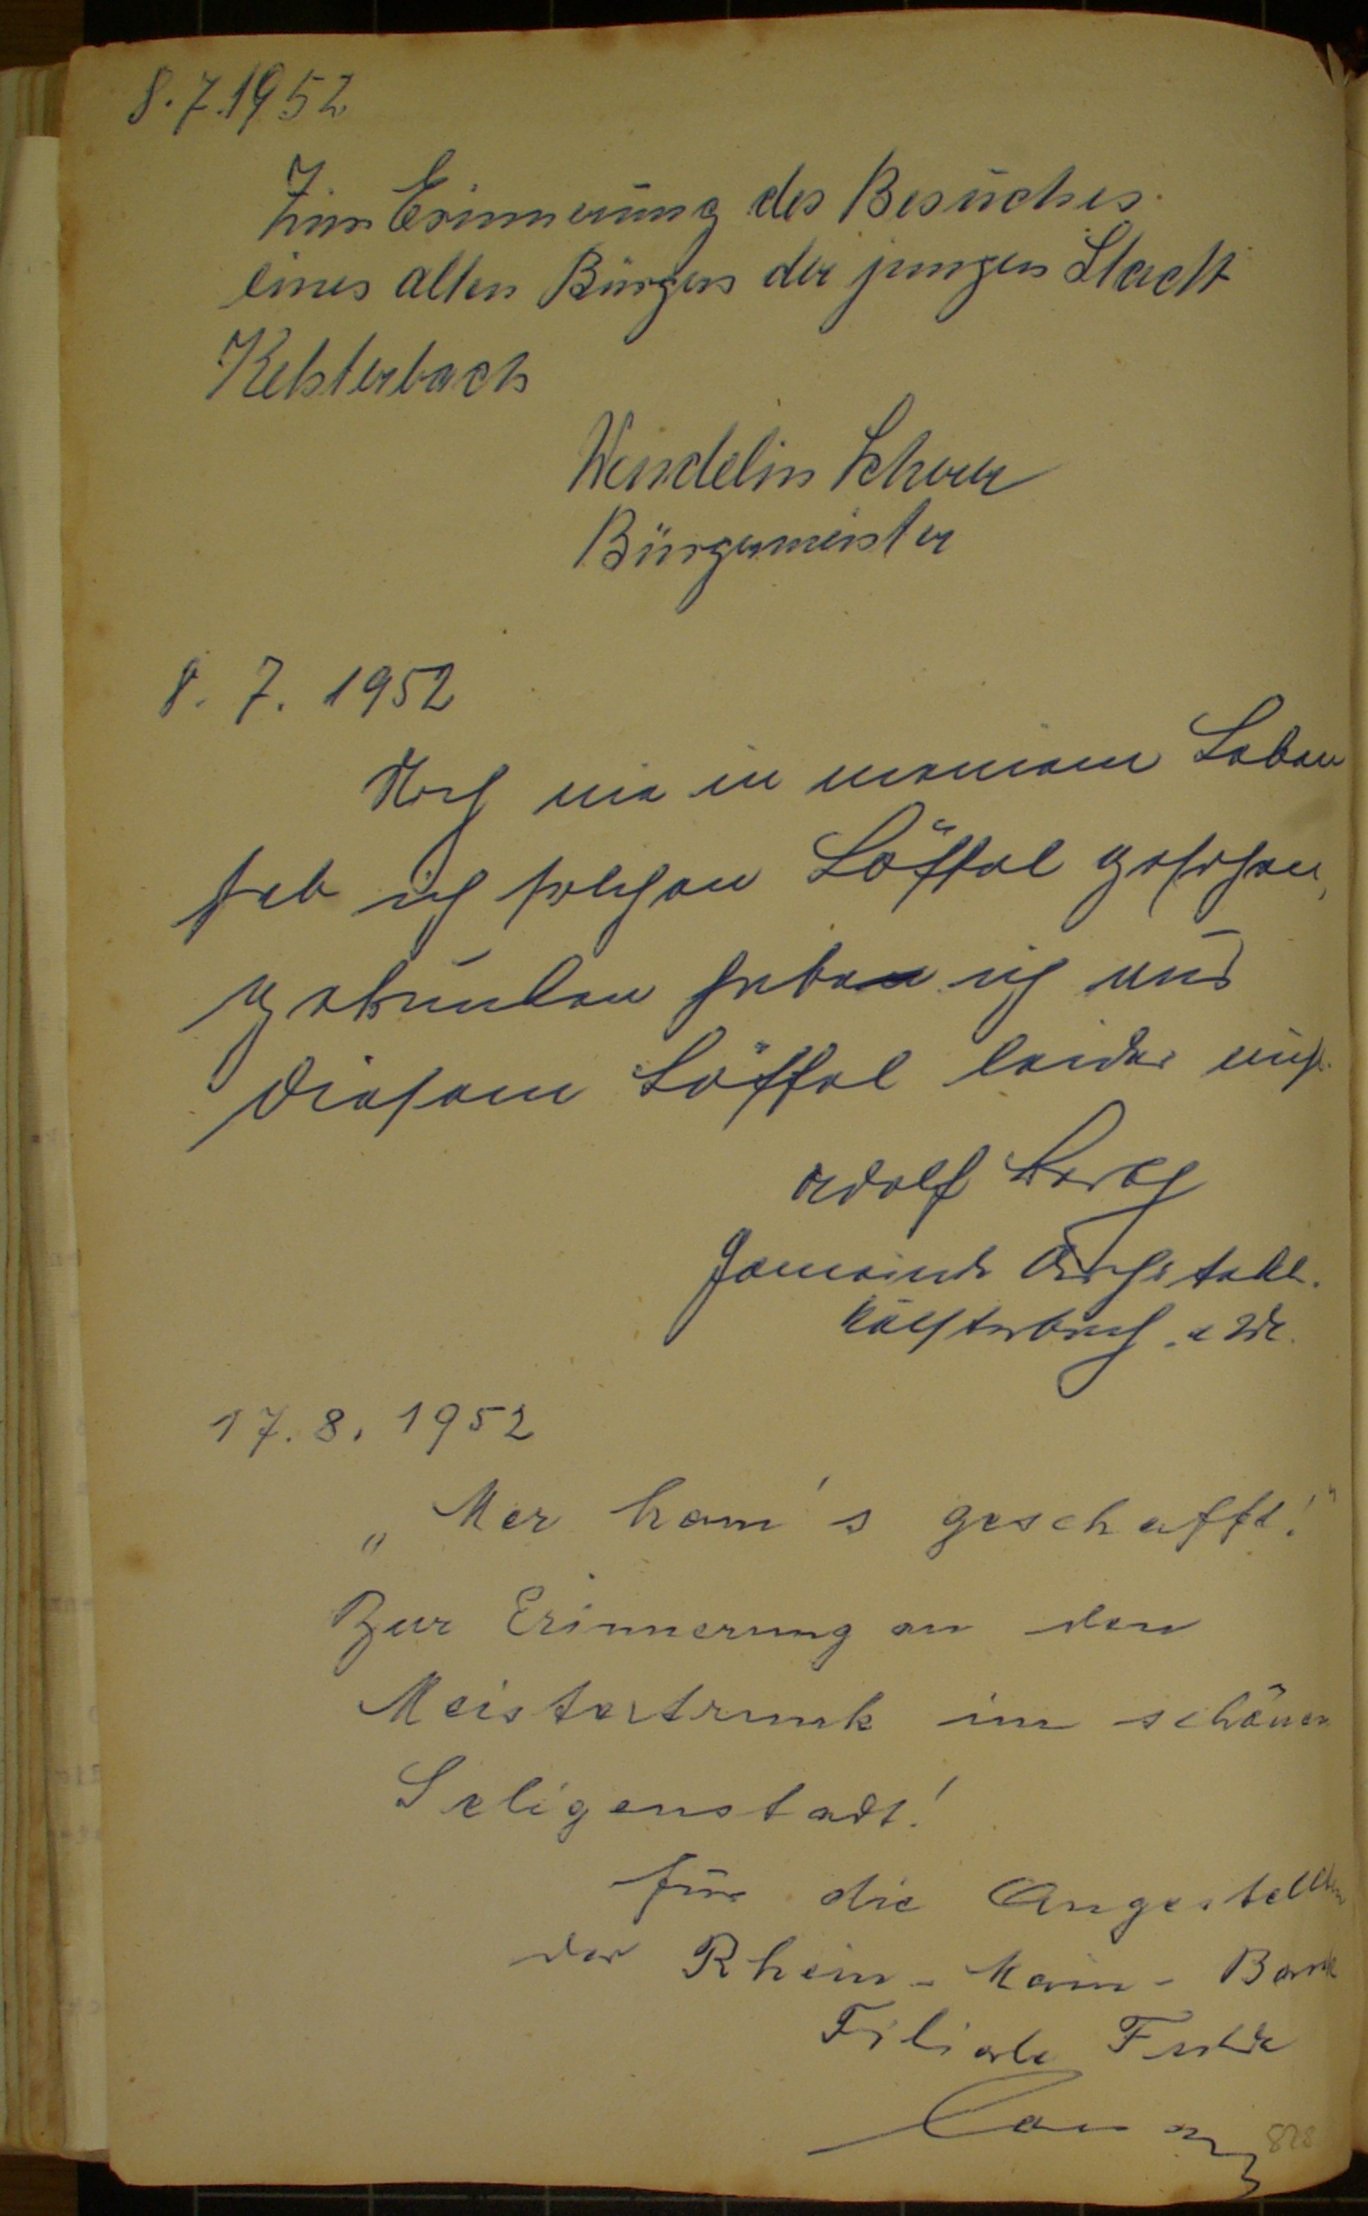 8.7.1952
Zur Erinnerung des Besuches
eines alten Bürgers der jungen Stadt
Kelsterbach
Wendelin Scherer
Bürgermeister
8. 7. 1952
Noch nie in meinem Leben
hab ich solchen Löffel gesehen,
getrunken habe ich aus
diesem Löffel leider nicht.
Adolf
Gemeinde
Kelsterbach a. M.
17. 8. 1952
„Mer ham's geschafft!"
Zur Erinnerung an den
Meistertrunk im schönen
Seligenstadt!
für die Angestellten
der Rhein-Main-Bank
Filiale Fulda
828